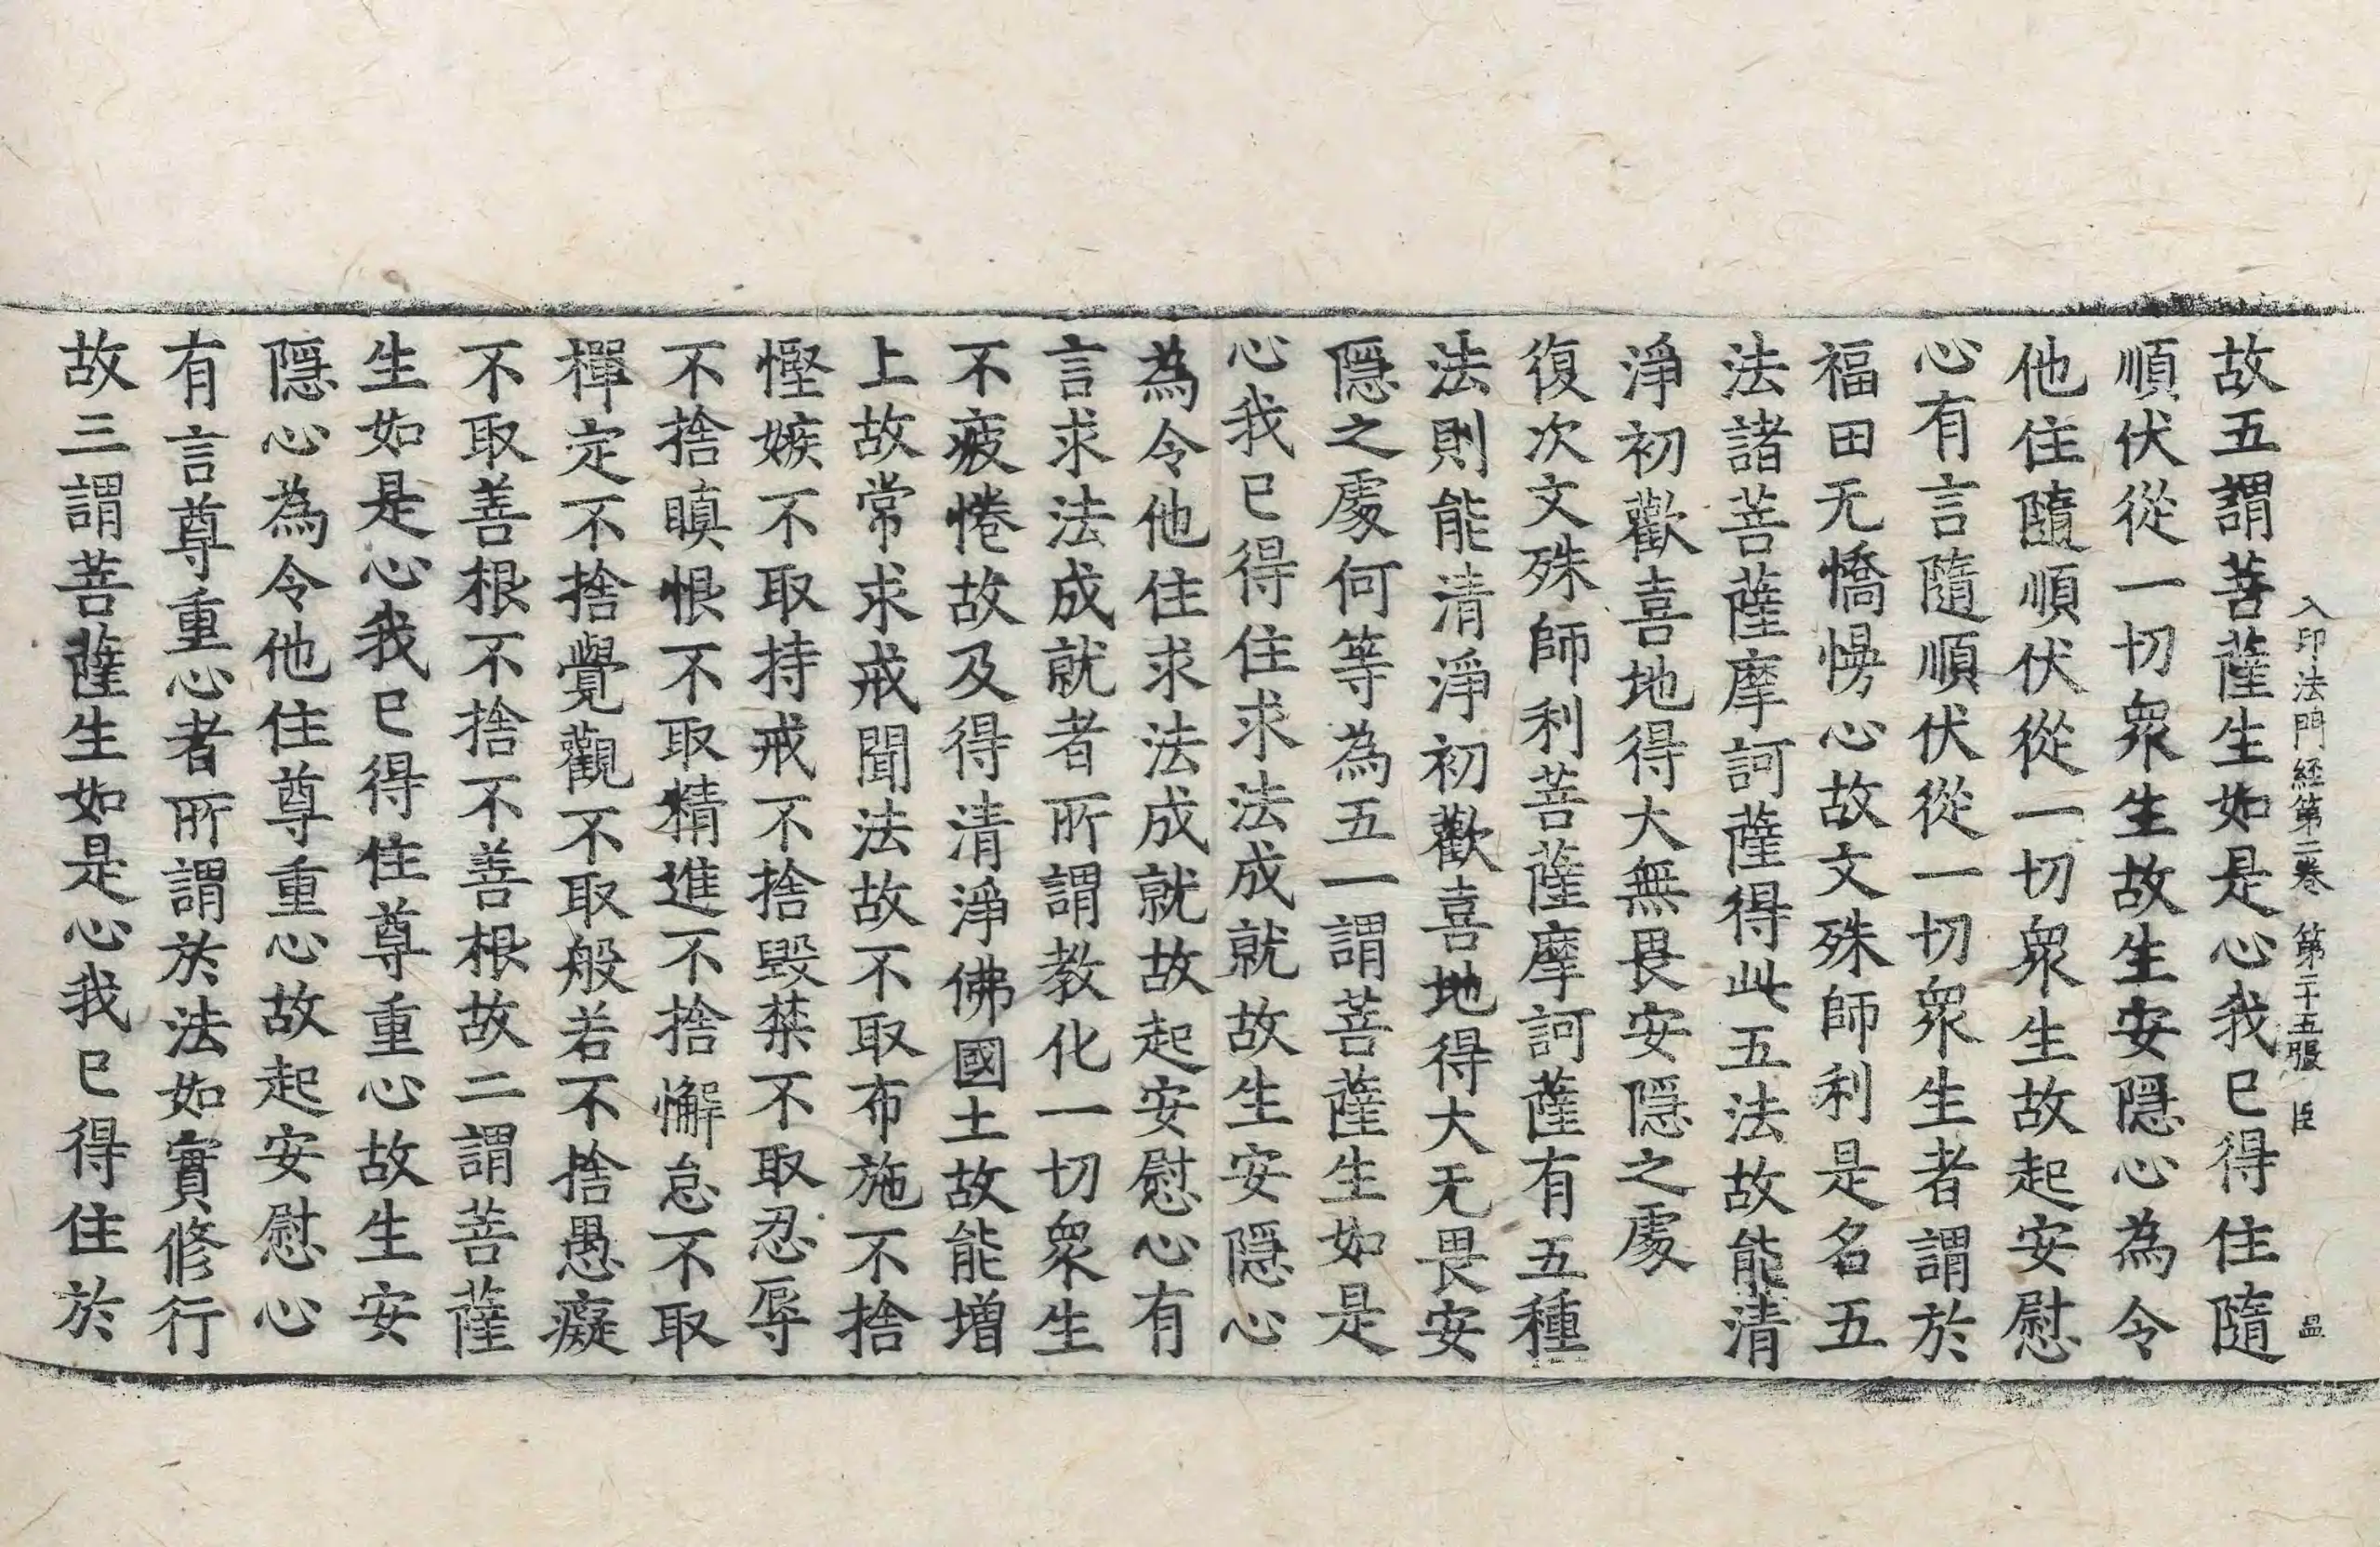 入印法門経第二卷　第二十五張　臣　昷
故五謂菩薩生如是心我已得住隨
順伏從一切衆生故生安隱心為令
他住隨順伏從一切衆生故起安慰
心有言隨順伏從一切衆生者謂於
福田无憍慢心故文殊師利是名五
法諸菩薩摩訶薩得此五法故能清
淨初歡喜地得大無畏安隱之處
復次文殊師利菩薩摩訶薩有五種
法則能清淨初歡喜地得大无畏安
隱之處何等為五一謂菩薩生如是
心我已得住求法成就故生安隱心
為令他住求法成就故起安慰心有
言求法成就者所謂教化一切衆生
不疲惓故及得清淨佛國土故能增
上故常求戒聞法故不取布施不捨
慳嫉不取持戒不捨毀禁不取忍辱
不捨瞋恨不取精進不捨懈怠不取
禪定不捨覺觀不取般若不捨愚癡
不取善根不捨不善根故二謂菩薩
生如是心我已得住尊重心故生安
隱心為令他住尊重心故起安慰心
有言尊重心者所謂於法如實修行
故三謂菩薩生如是心我已得住於